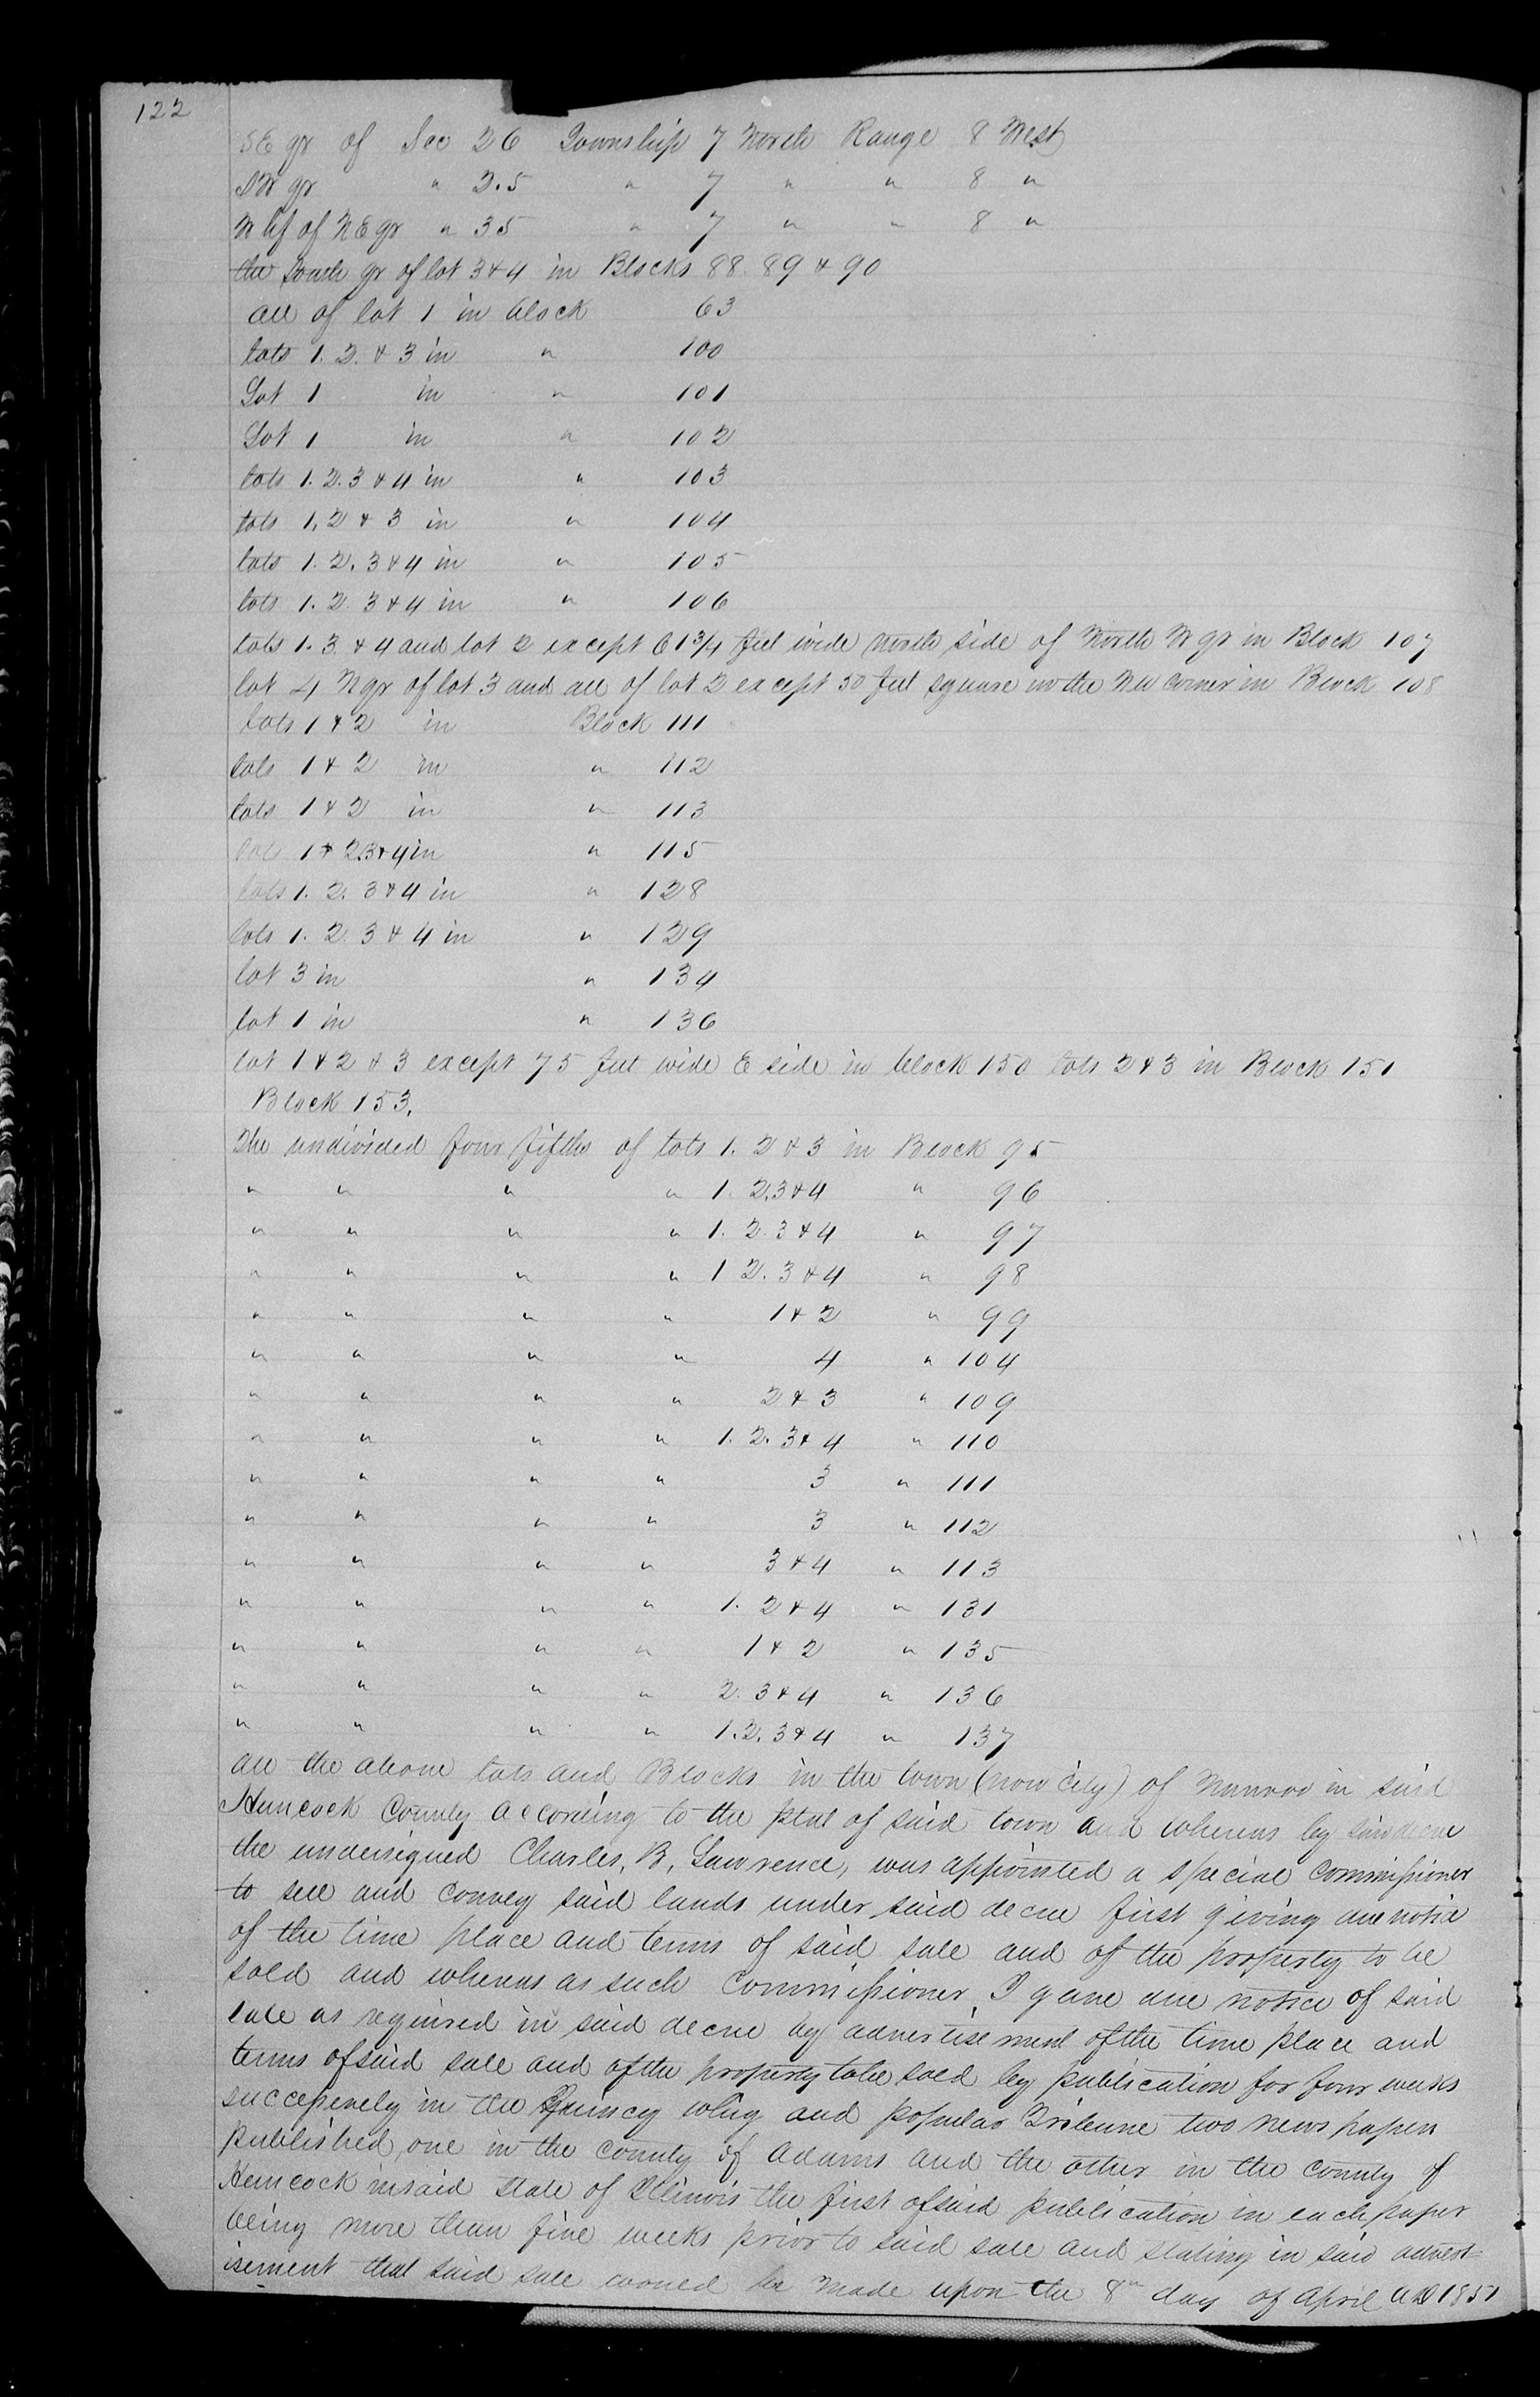 122
SE qr of Sec 26 Township 7 North Range 8 West
SW qr " 25 " 7 " " 8 "
W hf of NE qr " 35 " 7 " " 8 "
the South qr of lot 3 & 4 in Blocks 88 89 & 90
all of lot 1 in block 63
lots 1. 2. & 3 in " 100
Lot 1 in " 101
Lot 1 in " 102
lots 1. 2. 3 & 4 in " 103
lots 1, 2 & 3 in " 104
lots 1. 2. 3 & 4 in " 105
lots 1. 2. 3 & 4 in " 106
lots 1. 3. & 4 and lot 2 except 61 3/4 feet wide north side of North W qr in Block 107
lot 4 N qr of lot 3 and all of lot 2 except 50 feet square in the NW corner in Block 108
lots 1 & 2 in Block 111
lots 1 & 2 in " 112
lots 1 & 2 in " 113
lots 1 & 2.3 & 4 in " 115
lots 1. 2. 3 & 4 in " 128
lots 1. 2. 3 & 4 in " 129
lot 3 in " 134
lot 1 in " 136
lot 1 & 2 & 3 except 75 feet wide E side in block 150 lots 2 & 3 in Block 151
Block 153.
The undivided four fifths of lots 1. 2 & 3 in Block 95
" " " " 1. 2.3 & 4 " 96
" " " " 1. 2. 3 & 4 " 97
" " " " 1 2. 3 & 4 " 98
" " " " 1 & 2 " 99
" " " " 4 " 104
" " " " 2 & 3 " 109
" " " " 1. 2. 3 & 4 " 110
" " " " 3 " 111
" " " " 3 " 112
" " " " 3 & 4 " 113
" " " " 1. 2 & 4 " 131
" " " " 1 & 2 " 135
" " " " 2. 3 & 4 " 136
" " " " 1. 2. 3 & 4 " 137
all the above lots and Blocks in the town (now city) of Nauvoo in said
Hancock County according to the plat of said town and whereas by said decree
the undersigned Charles, B, Lawrence, was appointed a special commissioner
to sell and convey said lands under said decree first giving due notice
of the time place and terms of said sale and of the property to be
sold and whereas as such Commissioner, I gave due notice of said
sale as required in said decree by advertisement of the time place and
terms of said sale and of the property to be sold by publication for four weeks
successively in the Quincy Whig and popular Tribune two news papers
published, one in the county of Adams and the other in the county of
Hancock in said State of Illinois the first of said publication in each paper
being more than five weeks prior to said sale and stating in said advert
isement that said sale would be made upon the 8th day of April AD 1851